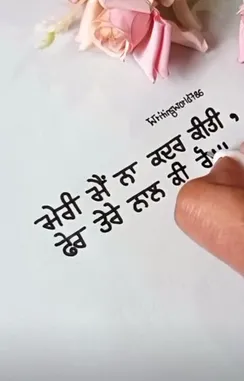 Writingworld786
ਮੇਰੀ ਮੈਂ ਨਾ ਕਦਰ ਕੀਤੀ ,
ਫੇਰ ਤੇਰੇ ਨਾਲ ਕੀ